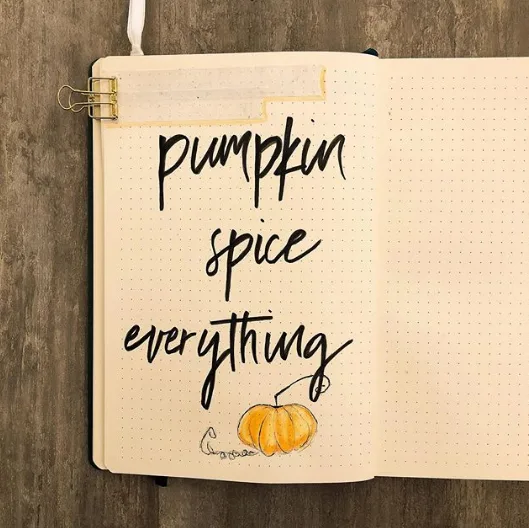 pumpkin
spice
everything